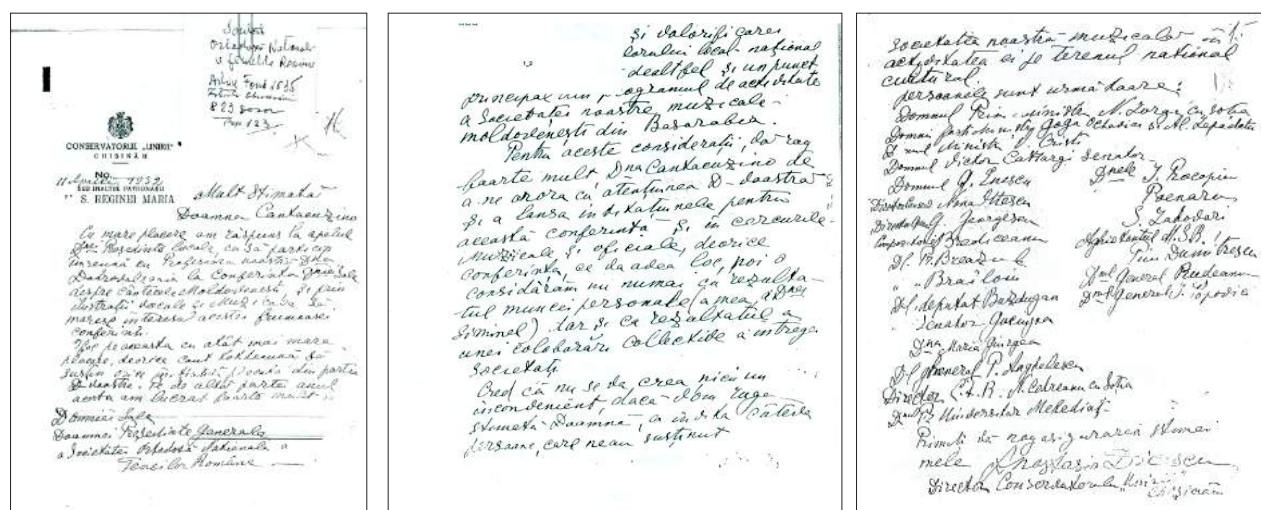 Societ.
Ortodoxă Națională
a femeilor Române
Arhiva Fond 1135
823
CONSERVATORUL „UNIREA"
CHIȘINĂU
No.
11 1932
SUB ÎNALTUL PATRONAJ
S. REGINEI MARIA
Mult stimată
Doamnă Cantacuzino
Cu mare placere am răspuns la apelul
Dnei Președinte locale, ca să particip
împreună cu Profesoara noastră Dna
la Conferința Dniei Sale
despre cântecele Moldovenești, și prin
ilustrații vocale și muzicale să
măresc interesul acestei frumoase
conferinți.
Fac aceasta cu atât mai mare
placere, deorice caut totdeauna să
susțin orice inițiativă pornită din partea
D-voastre. Pe de altă parte anul
acesta am lucrat foarte mult
Domniei Sale
Doamnei Președinte Generale
a Societăței Ortodoxă Naționale a
Femeilor Române
și valorificarea
local-național
dealtfel și un punct
principal din programul de activitate
a Societatea noastre muzicale-
moldovenești din Basarabia.
Pentru aceste considerații, vă rog
foarte mult Dna Cantacuzino de
a ne onora cu atențiunea D-voastră
și a lansa invitațiunele pentru
această conferință și în cercurile
muzicale și oficiale, deorice
conferința, ce va avea loc, noi o
considărăm nu numai ca rezulta-
tul muncei personale (a mea, a Dnei
Siminel) dar și ca rezultatul a
unei colaborări collective a întregei
societăți
Cred că nu se va crea nici un
inconvenient, dacă v'om ruga
stimată Doamnă, a invita câteva
persoane, care neau susținut
societatea noastră muzicală în
activitatea ei pe terenul național
cultural.
persoanele sunt următoare:
Domnul Prim-Ministru N. Iorga cu soția
Domnii Goga Octavian și Al. Lapedatu
D nul Ministru Cristi
Domnul Victor Cattargi senator
Domnul G. Enescu
Dnele T. Procopiu
Nona Ottescu
Poenaru
Georgescu
S. Zahodari
Compozitorul Brediceanu
Aghiotantul M.S.R.
Dl. Breazul
Dumitrescu
" " Brăiloiu
Dnul General Rudeanu
Dl. deputat Bardugan
Dnul General I. Popovici
" Senator
Dna Maria
Dl general P. Anghelescu
Director C.F.R. cu Soția
Dnul P. Universitar Mehedinți
Primiți vă rog asigurarea stimei
mele Anastasia Dicescu
Director Conservatorului „Unirea"
Chișinău